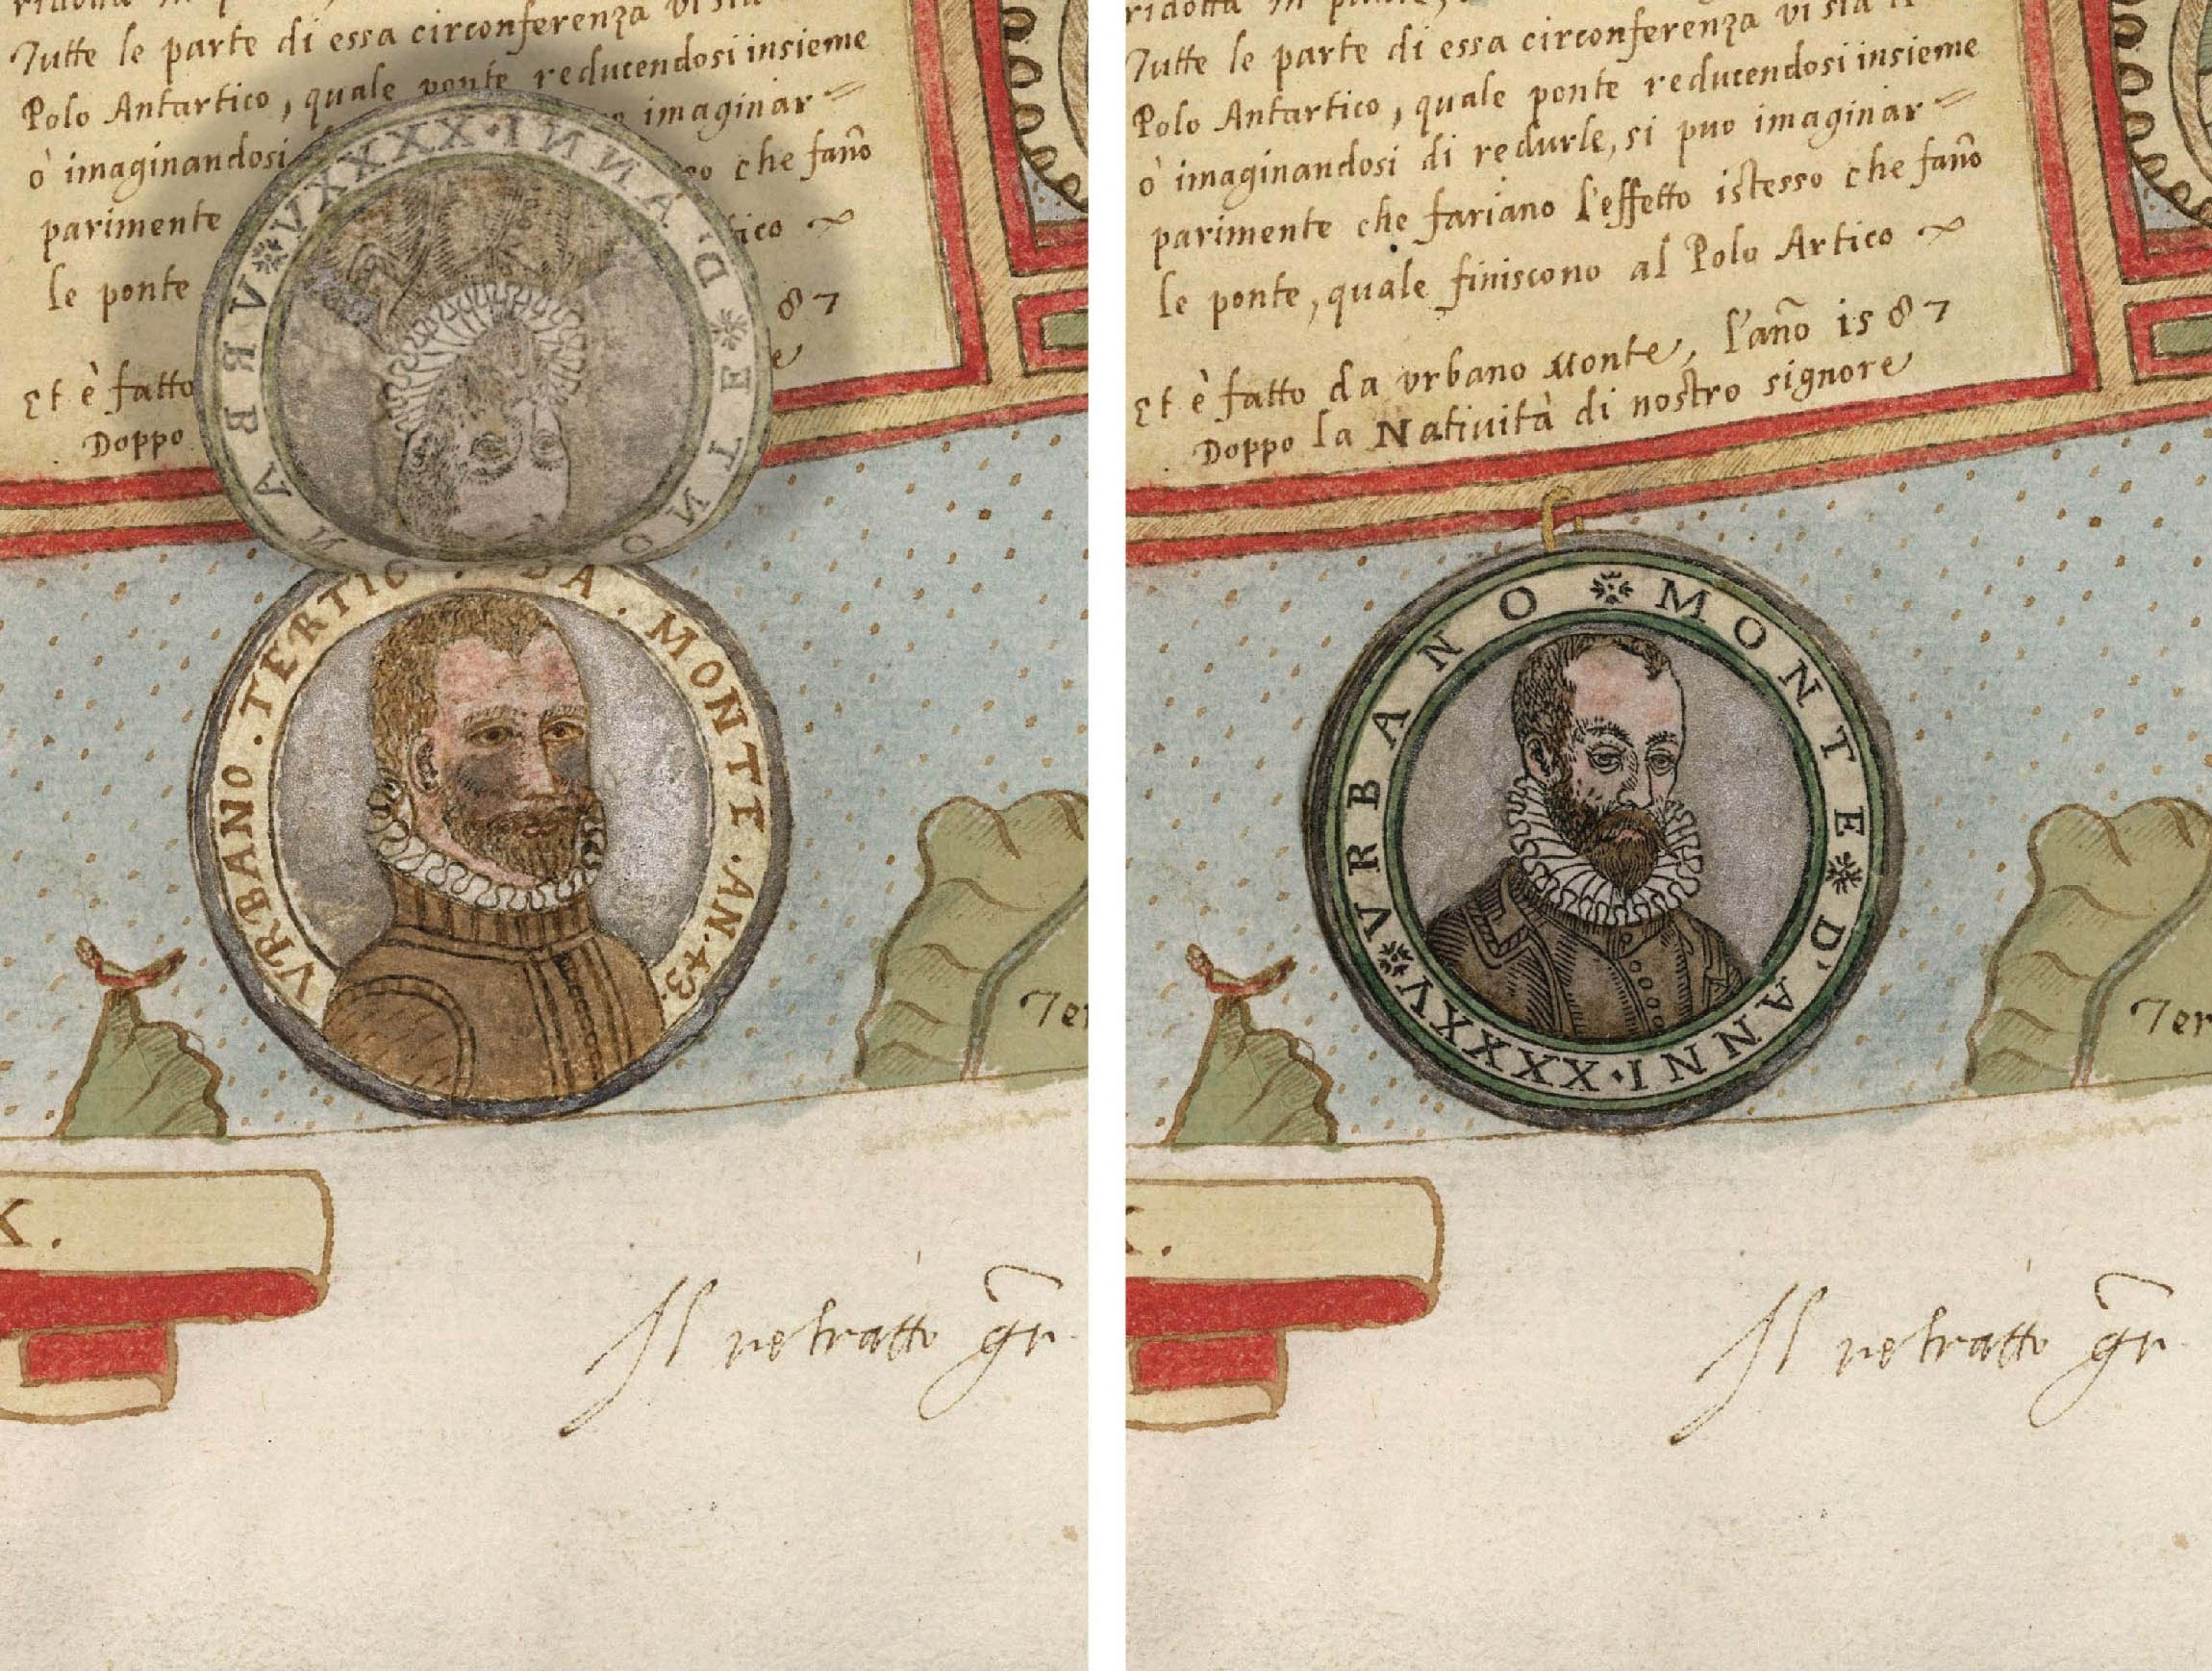 Tutte le parte di essa circonferenza vi sia
Polo Antartico, quale ponte reducendosi insieme
ò imaginandosi imaginar
parimente che fano
le ponte tico
87
Et è fatto
Doppo
VRBANO
D'ANNI·XXXXV
VRBANO·TERTIO DA·MONTE·AN·43·
K.
Il retratto gr
Tutte le parte di essa circonferenza vi sia
Polo Antartico, quale ponte reducendosi insieme
ò imaginandosi di redurle, si puo imaginar
parimente che fariano l'effetto istesso che fano
le ponte, quale finiscono al Polo Artico
Et è fatto da vrbano Monte, l'año is87
Doppo la Natiuità di nostro signore
VRBANO MONTE D'ANNI·XXXXV
Ter
Il retratto gr